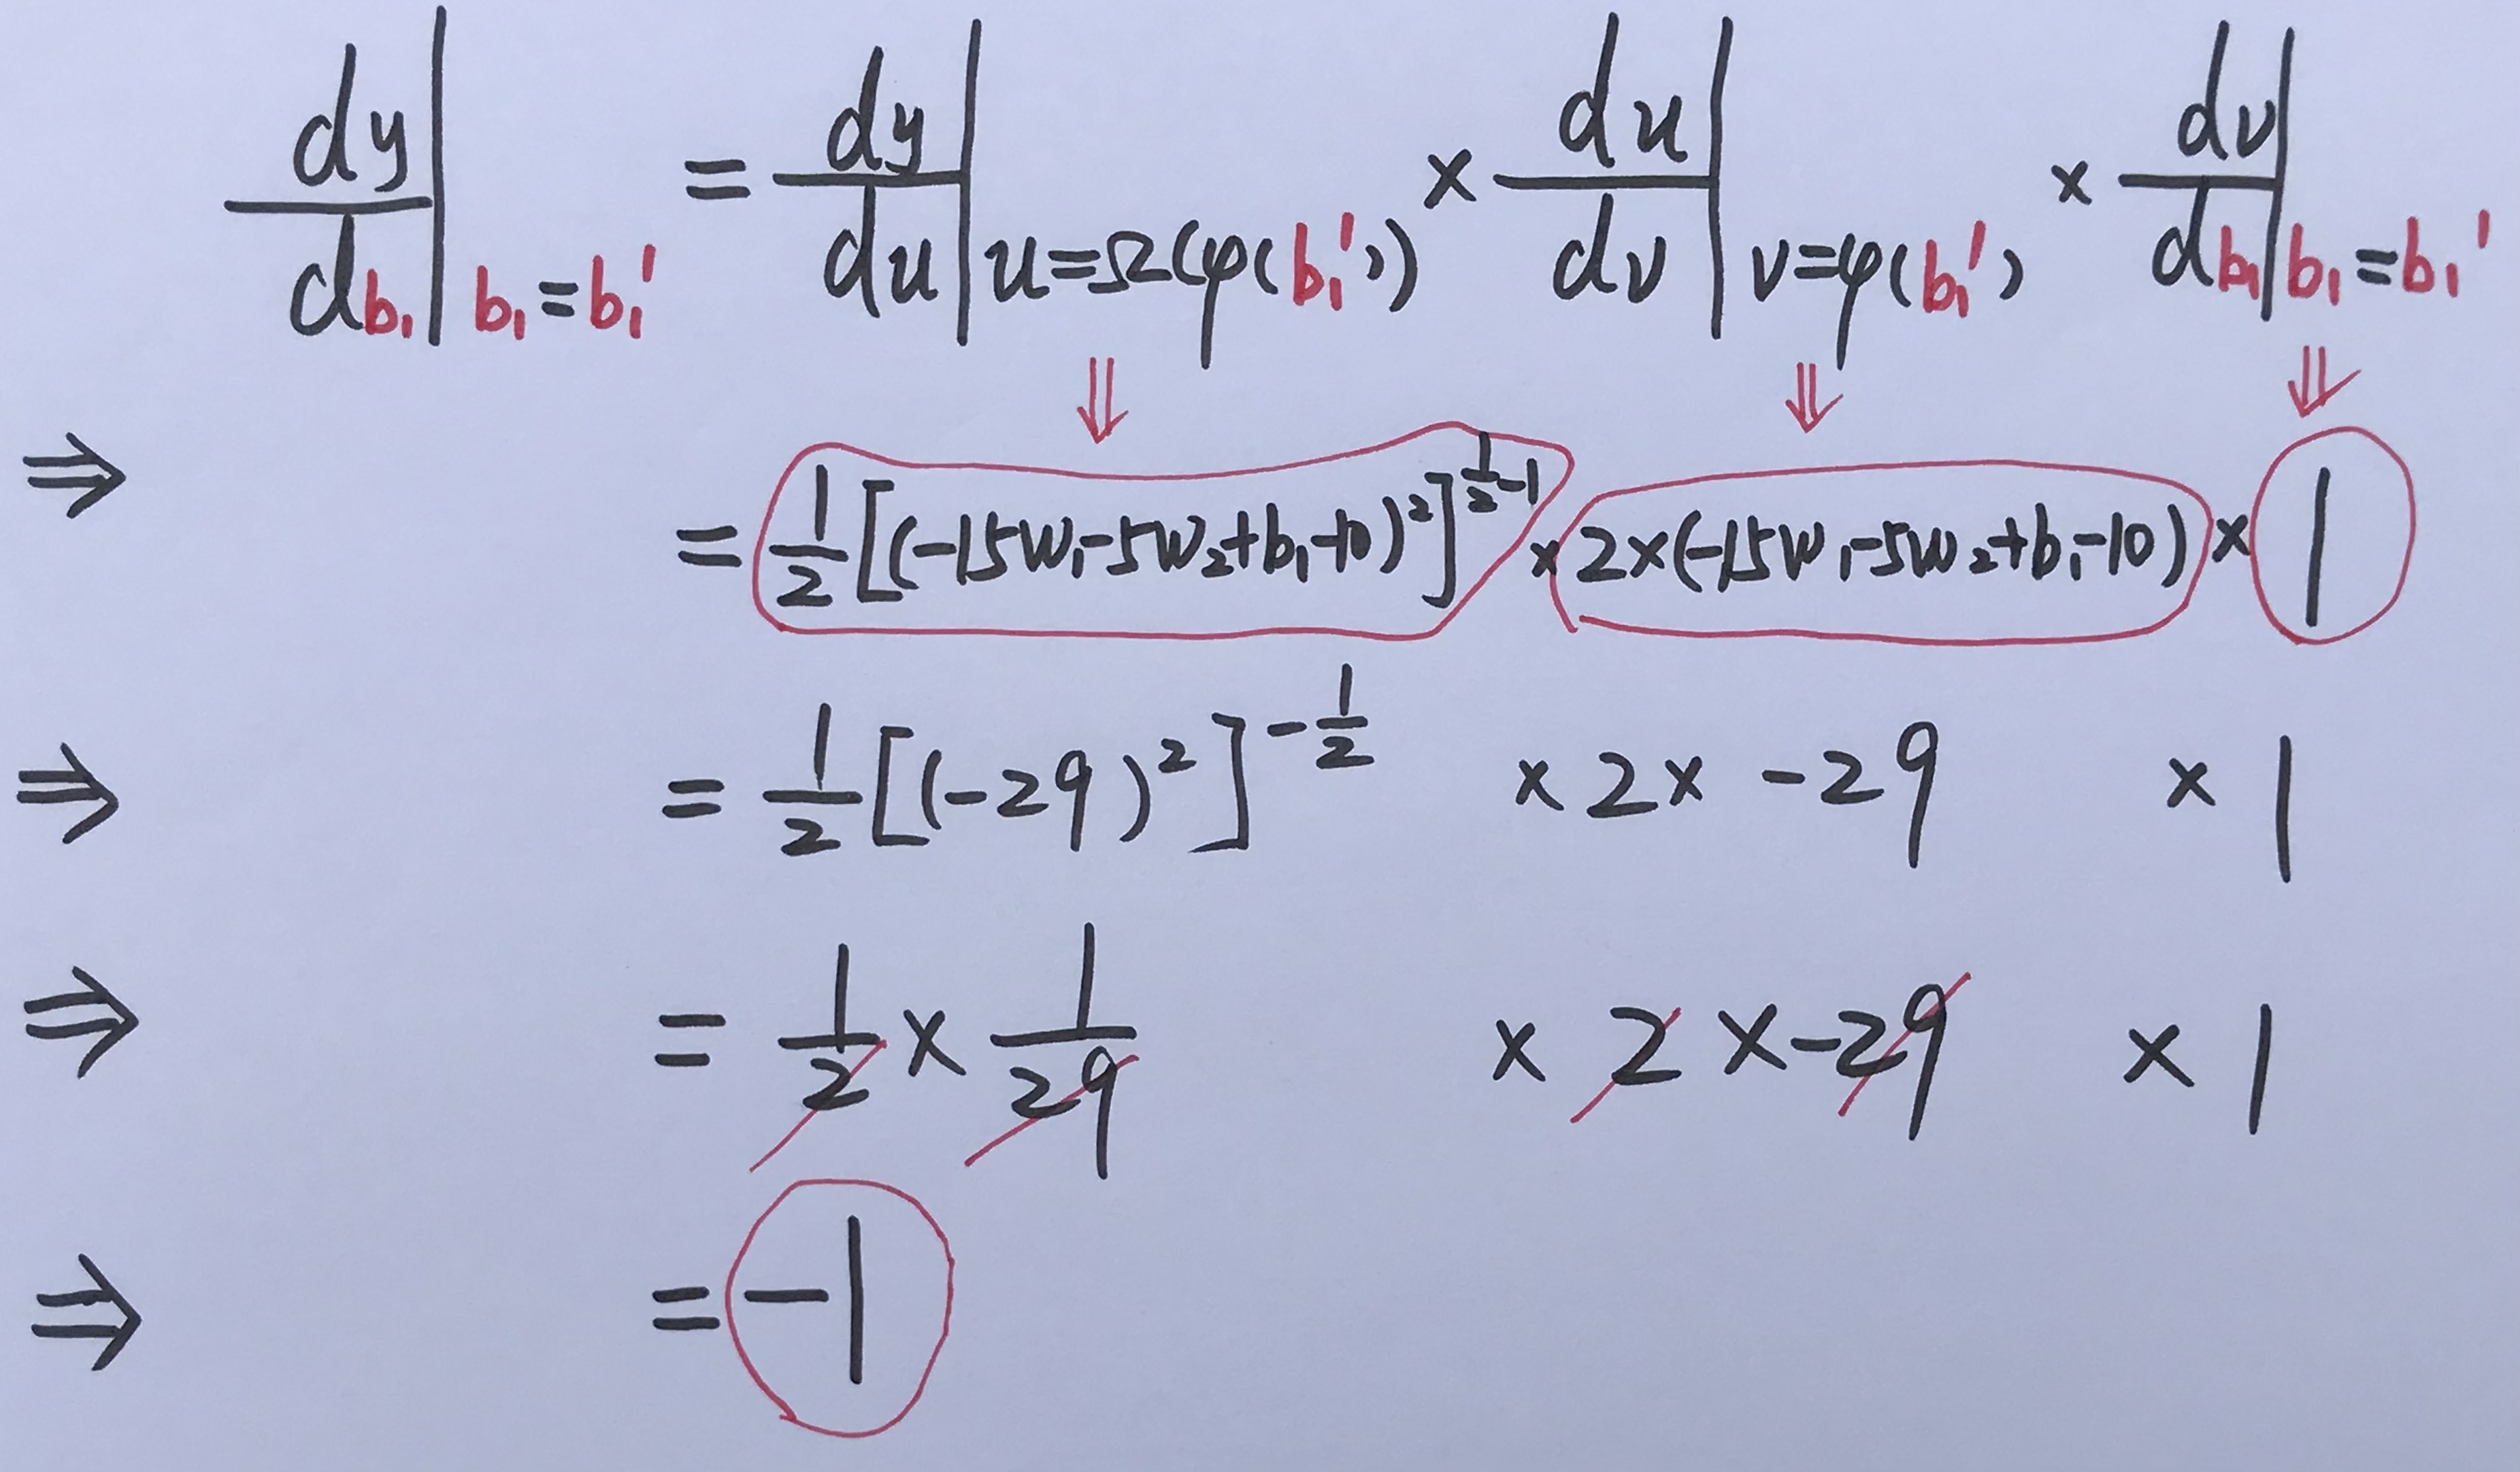 dy/db₁|b₁=b₁' = dy/du|u=Ω(φ(b₁')) × du/dv|v=φ(b₁') × dv/db₁|b₁=b₁'
⇓ ⇓ ⇓
⇒ = 1/2[(-15w₁-5w₂+b₁-10)²]^(1/2-1) × 2×(-15w₁-5w₂+b₁-10) × 1
⇒ = 1/2[(-29)²]^(-1/2) × 2× -29 × 1
⇒ = 1/2 × 1/29 × 2 × -29 × 1
⇒ = -1